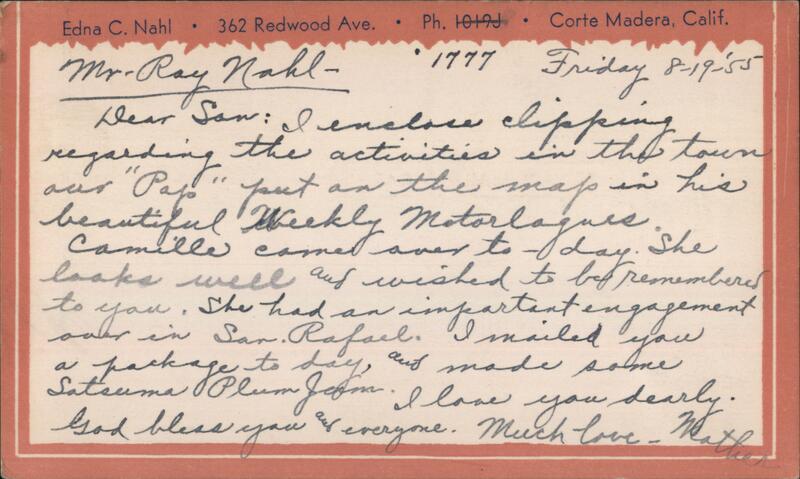 Edna C. Nahl • 362 Redwood Ave. • Ph. 1019J • Corte Madera, Calif.
Mr. Ray Nahl - • 1777 Friday 8-19-'55
Dear Son: I enclose clipping
regarding the activities in the town
our "Pap" put on the map in his
beautiful Weekly Motorlogues.
Camille came over to-day. She
looks well and wished to be remembered
to you. She had an important engagement
over in San. Rafael. I mailed you
a package to day, and made some
Satsuma Plum Jam. I love you dearly.
God bless you and everyone. Much love - Mother